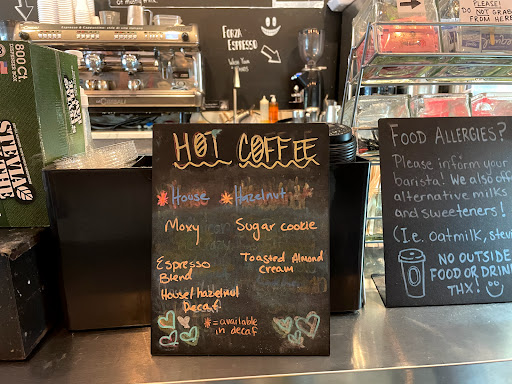 PLEASE!
DO NOT GRAB
FROM HERE
FORZA
ESPRESSO
800 CT
STEVIA
IN THE
HOT COFFEE
* House
* Hazelnut
Moxy
Sugar cookie
Espresso
Blend
Toasted Almond
Cream
House/hazelnut
Decaf
* = available
in decaf
FOOD ALLERGIES?
Please inform your
barista! We also off
alternative milks
and sweeteners!
(I.e. oatmilk, stevi
NO OUTSIDE
FOOD OR DRIN
THX!